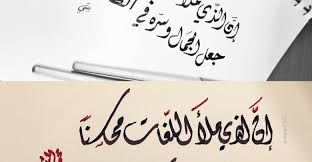 إن الذي ملأ
جعل الجمال وسره في
إنَّ الذي ملأ اللغات محاسنًا